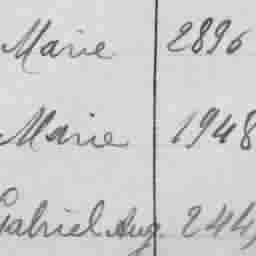 Marie 2896
Marie 1948
Gabriel Aug. 244